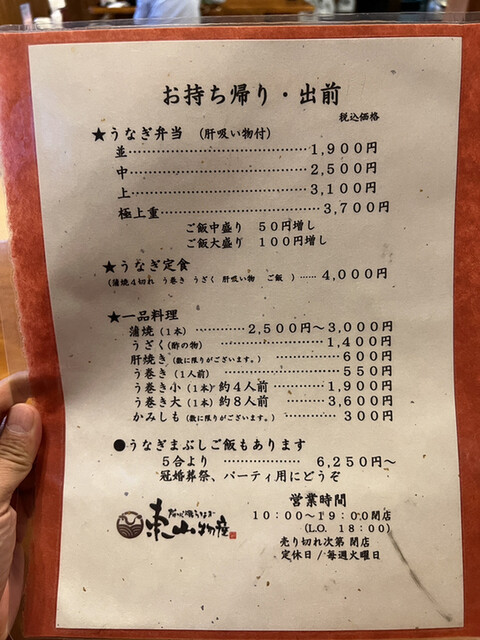 お持ち帰り・出前
税込価格
★うなぎ弁当 (肝吸い物付)
並……………………………1,900円
中……………………………2,500円
上……………………………3,100円
極上重………………………3,700円
ご飯中盛り 50円増し
ご飯大盛り 100円増し
★うなぎ定食
(蒲焼4切れ う巻き うざく 肝吸い物 ご飯 )……4,000円
★一品料理
蒲焼(1本)…………2,500円～3,000円
うざく(酢の物)…………………1,400円
肝焼き(数に限りがございます。)…………600円
う巻き(1人前)…………………550円
う巻き小(1本)約4人前…………1,900円
う巻き大(1本)約8人前…………3,600円
かみしも(数に限りがございます。)…………300円
●うなぎまぶしご飯もあります
5合より ………………6,250円～
冠婚葬祭、パーティ用にどうぞ
営業時間
10:00～19:00閉店
(L.O. 18:00)
売り切れ次第 閉店
定休日/毎週火曜日
東山物産